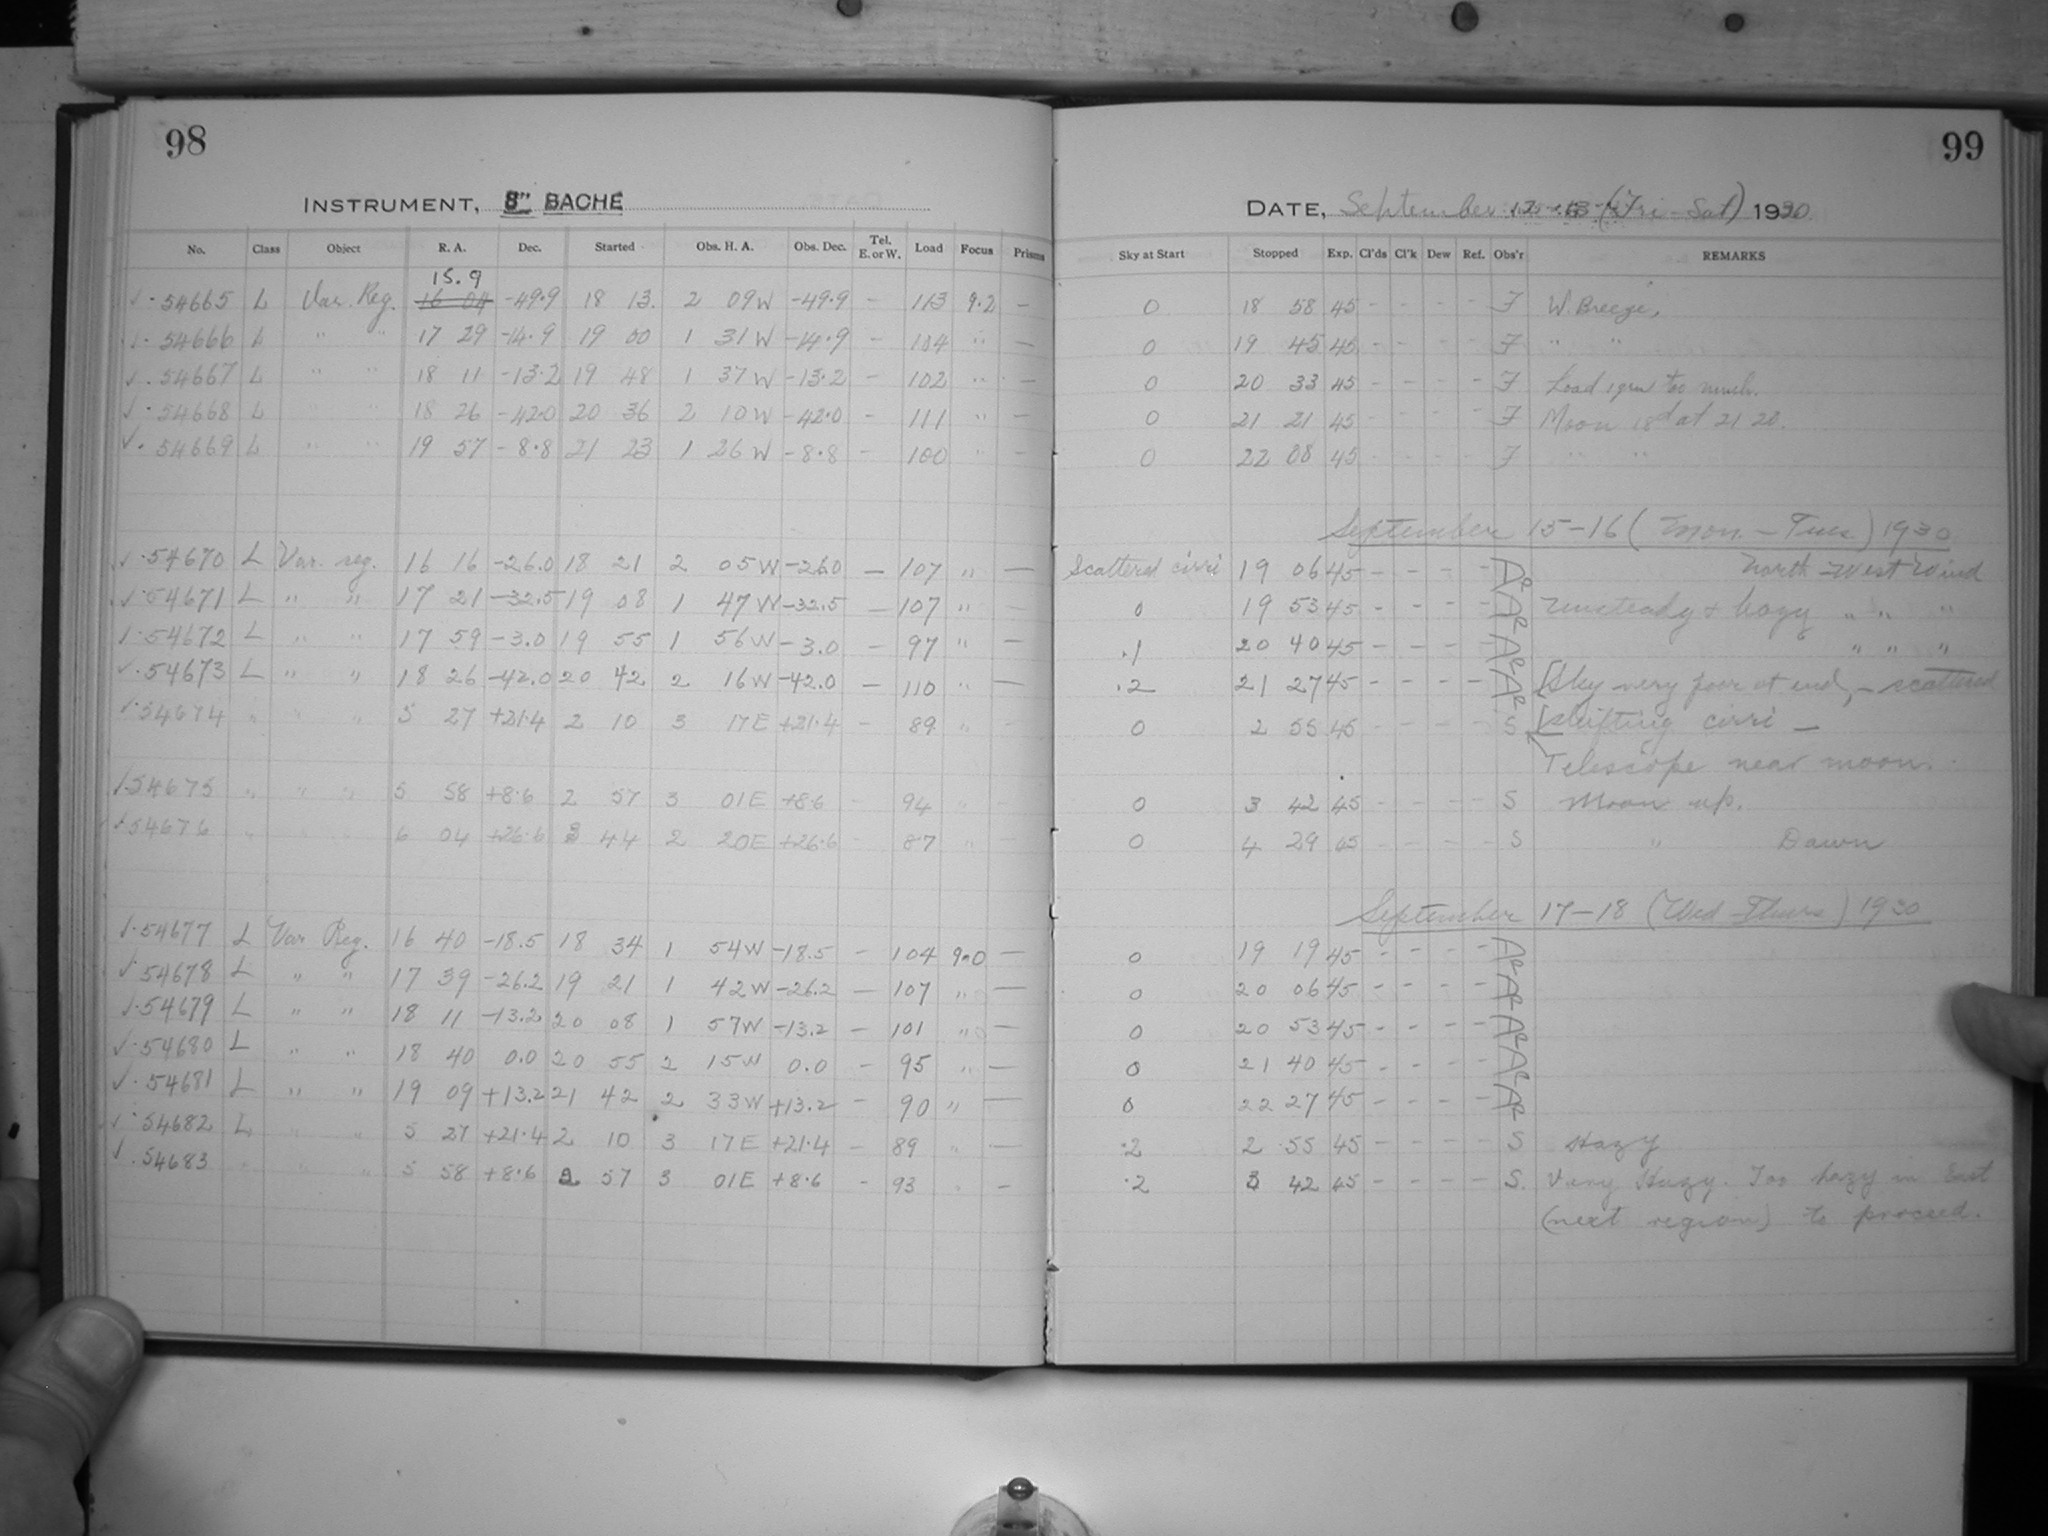 98
INSTRUMENT, 8" BACHE
No. Class Object R. A. Dec. Started Obs. H. A. Obs. Dec. Tel. E. or W. Load Focus Prisms
15.9
✓. 54665 L Var. Reg. 16 04 -49.9 18 13. 2 09W -49.9 - 113 9.2 -
✓. 54666 L " " 17 29 -14.9 19 00 1 31W -14.9 - 104 " -
✓. 54667 L " " 18 11 -13.2 19 48 1 37W -13.2 - 102 " -
✓. 54668 L " " 18 26 -42.0 20 36 2 10W -42.0 - 111 " -
✓. 54669 L " " 19 57 -8.8 21 23 1 26W -8.8 - 100 " -
✓. 54670 L Var. reg. 16 16 -26.0 18 21 2 05W -26.0 - 107 " -
✓. 54671 L " " 17 21 -32.5 19 08 1 47W -32.5 - 107 " -
✓. 54672 L " " 17 59 -3.0 19 55 1 56W -3.0 - 97 " -
✓. 54673 L " " 18 26 -42.0 20 42 2 16W -42.0 - 110 " -
✓. 54674 " " " 5 27 +21.4 2 10 3 17E +21.4 - 89 " -
✓. 54675 " " " 5 58 +8.6 2 57 3 01E +8.6 - 94 " -
✓. 54676 " " " 6 04 +26.6 3 44 2 20E +26.6 - 87 " -
✓. 54677 L Var Reg. 16 40 -18.5 18 34 1 54W -18.5 - 104 9.0 -
✓. 54678 L " " 17 39 -26.2 19 21 1 42W -26.2 - 107 " -
✓. 54679 L " " 18 11 -13.2 20 08 1 57W -13.2 - 101 " -
✓. 54680 L " " 18 40 0.0 20 55 2 15W 0.0 - 95 " -
✓. 54681 L " " 19 09 +13.2 21 42 2 33W +13.2 - 90 " -
✓. 54682 L " " 5 27 +21.4 2 10 3 17E +21.4 - 89 " -
✓. 54683 " " " 5 58 +8.6 2 57 3 01E +8.6 - 93 " -
99
DATE, September 12-13 (Fri-Sat) 1930
Sky at Start Stopped Exp. Cl'ds Cl'k Dew Ref. Obs'r REMARKS
0 18 58 45 - - - - F W. Breeze,
0 19 45 45 - - - - F " "
0 20 33 45 - - - - F Load 1 gm too much.
0 21 21 45 - - - - F Moon 18d at 21 20.
0 22 08 45 - - - - F " "
September 15-16 (Mon-Tues) 1930
Scattered cirri 19 06 45 - - - - North-West Wind
0 19 53 45 - - - - Unsteady & hazy " " "
.1 20 40 45 - - - - " " "
.2 21 27 45 - - - - [Sky very poor at end, - scattered
0 2 55 45 - - - - S [shifting cirri -
Telescope near moon.
0 3 42 45 - - - - S Moon up.
0 4 29 45 - - - - S " Dawn
September 17-18 (Wed-Thurs) 1930
0 19 19 45 - - - -
0 20 06 45 - - - -
0 20 53 45 - - - -
0 21 40 45 - - - -
0 22 27 45 - - - -
.2 2 55 45 - - - - S Hazy
.2 3 42 45 - - - - S. Very Hazy. Too hazy in East
(next region) to proceed.